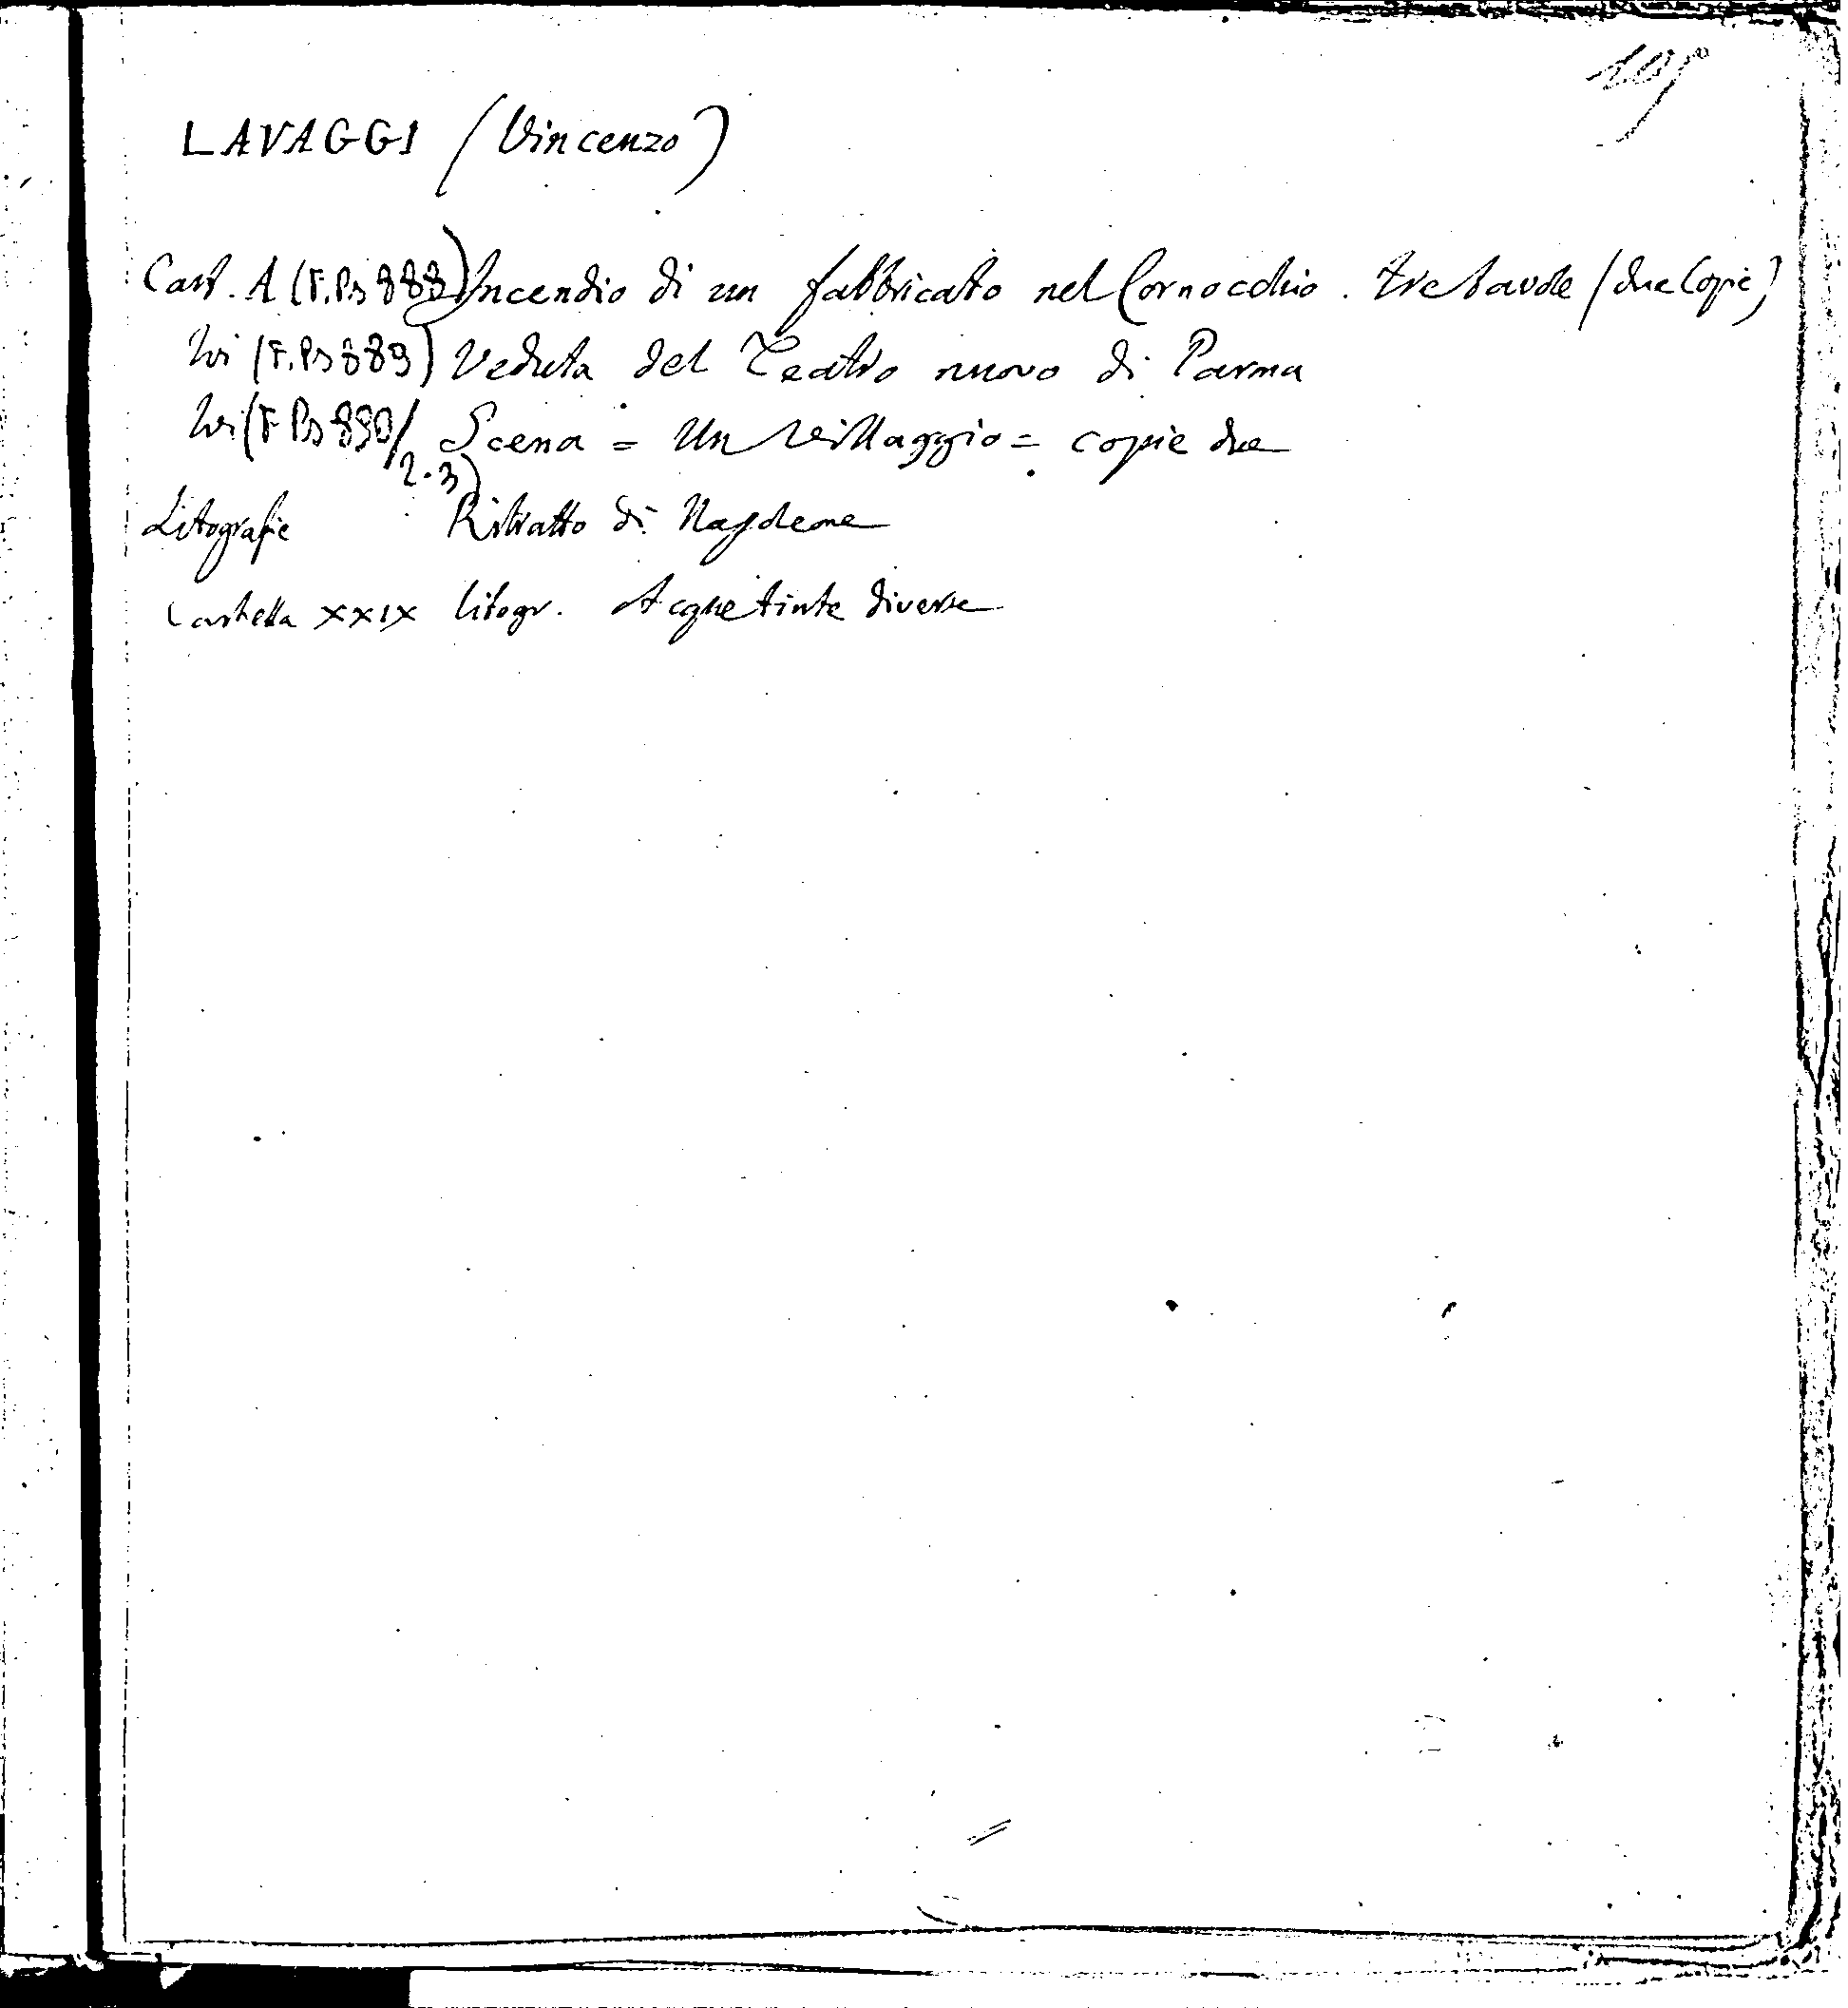 105
LAVAGGI (Vincenzo)
Cart. A (F. Ps 888) Incendio di un fabbricato nel Cornocchio. tre tavole (due Copie)
Ivi (F. Ps 889) Veduta del Teatro nuovo di Parma
Ivi (F Ps 890/ Scena = Un Villaggio = copie due
2.3)
Litografie Ritratto di Napoleone
Cartella XXIX litogr. Acquetinte diverse